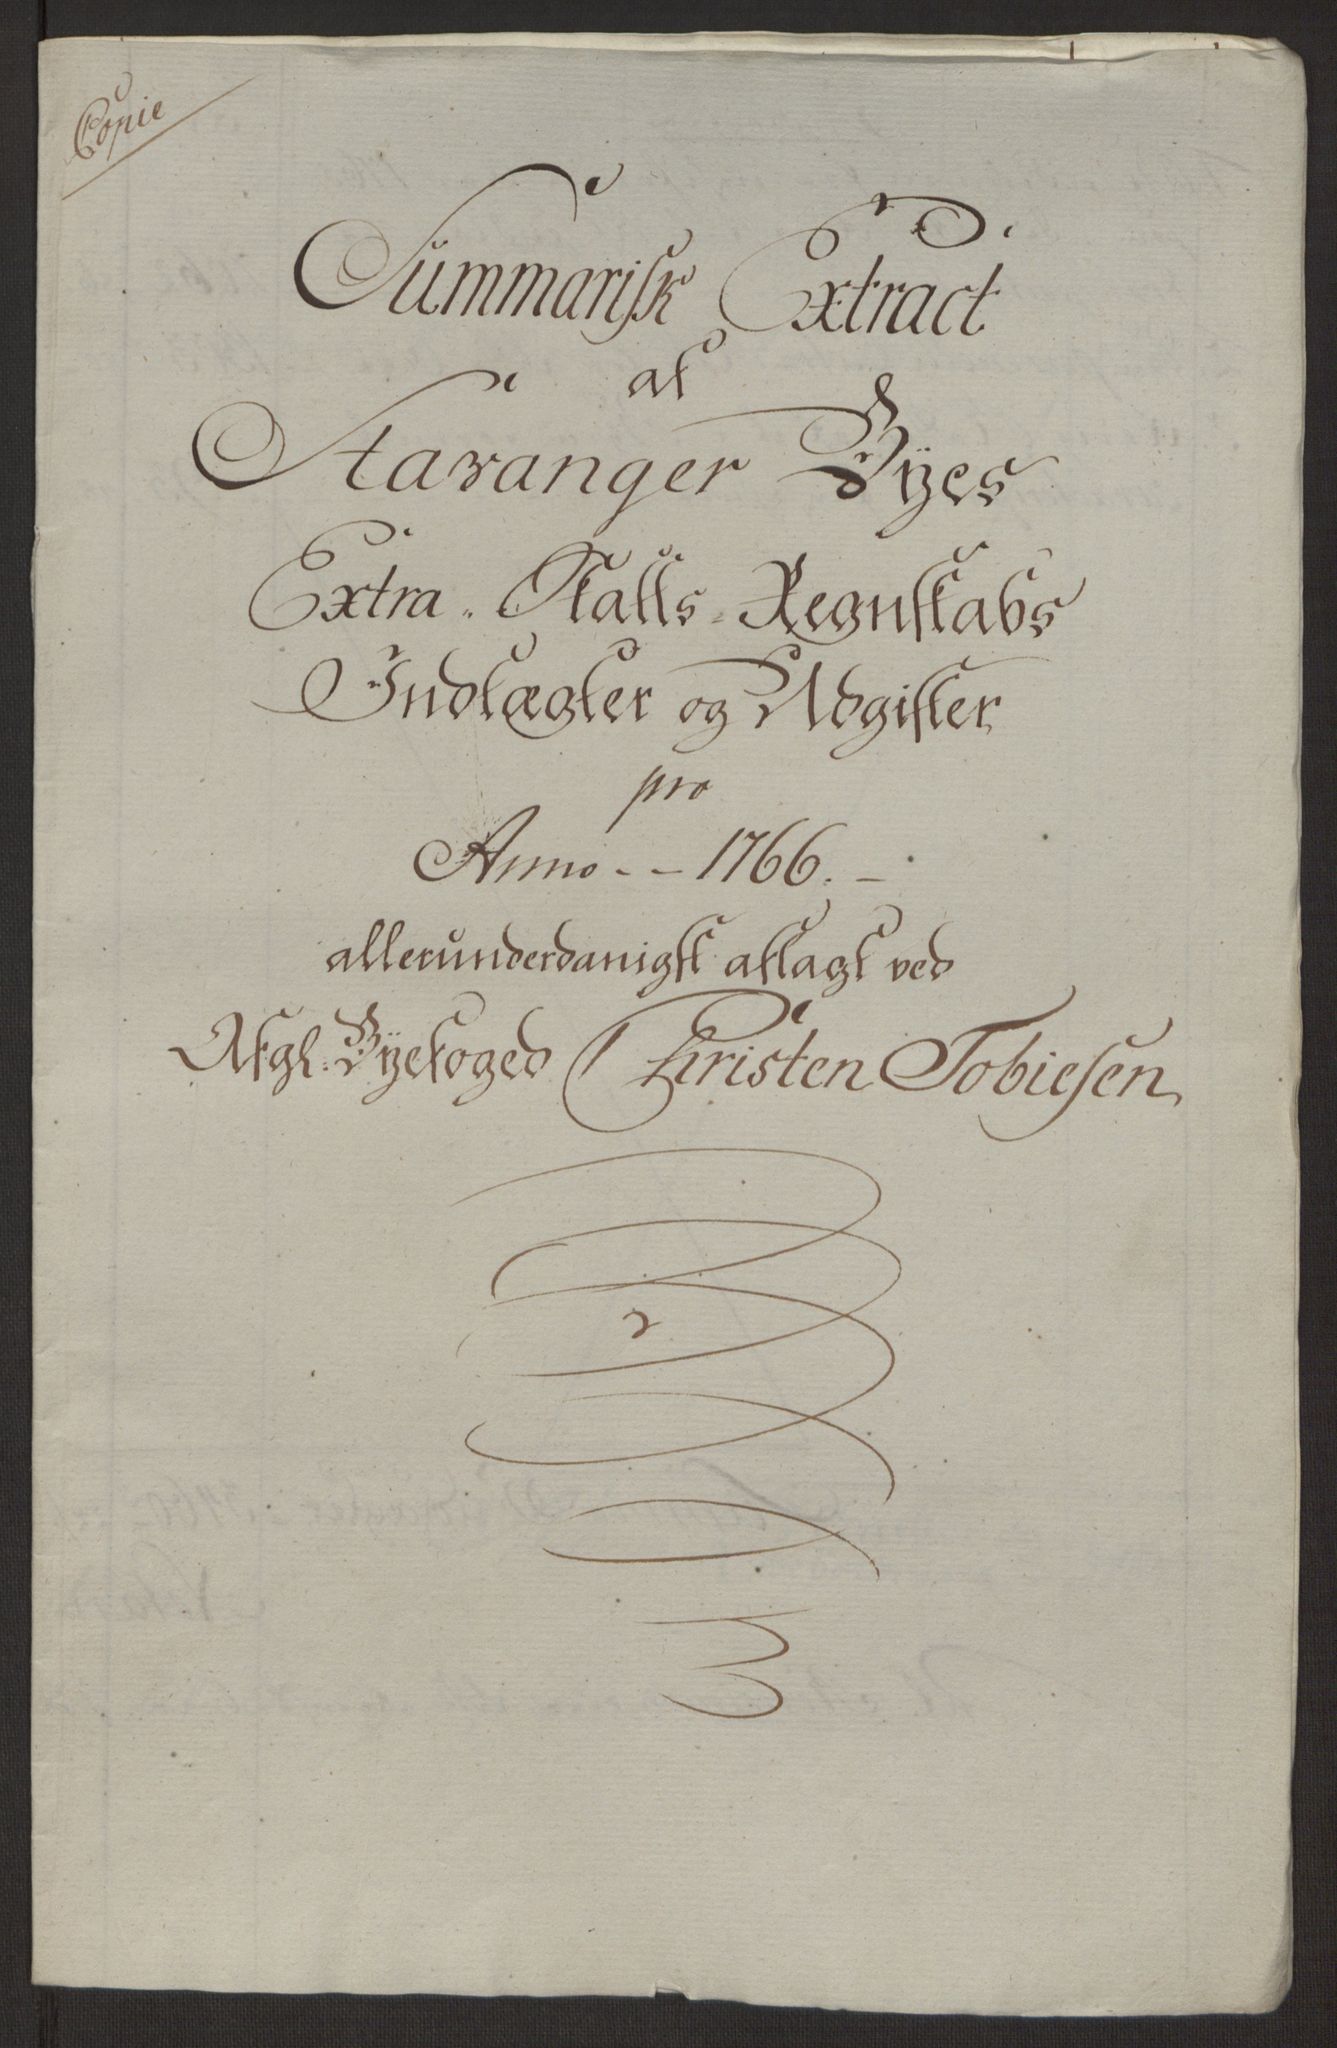 Copie
Summarisk Extract
af
Stavanger Byes
Extra-Skatts-Regnskabs
Indtægter og Udgifter
pro
Anno - - 1766. -
allerunderdanigst aflagt ved
Byefoged Christen Tobiesen